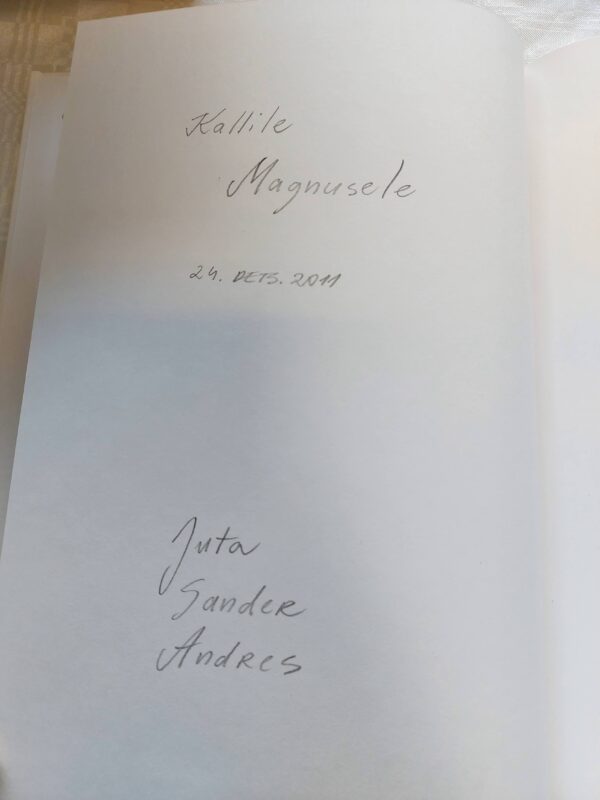 Kallile
Magnusele
24. DETS. 2011
Juta
Sander
Andres